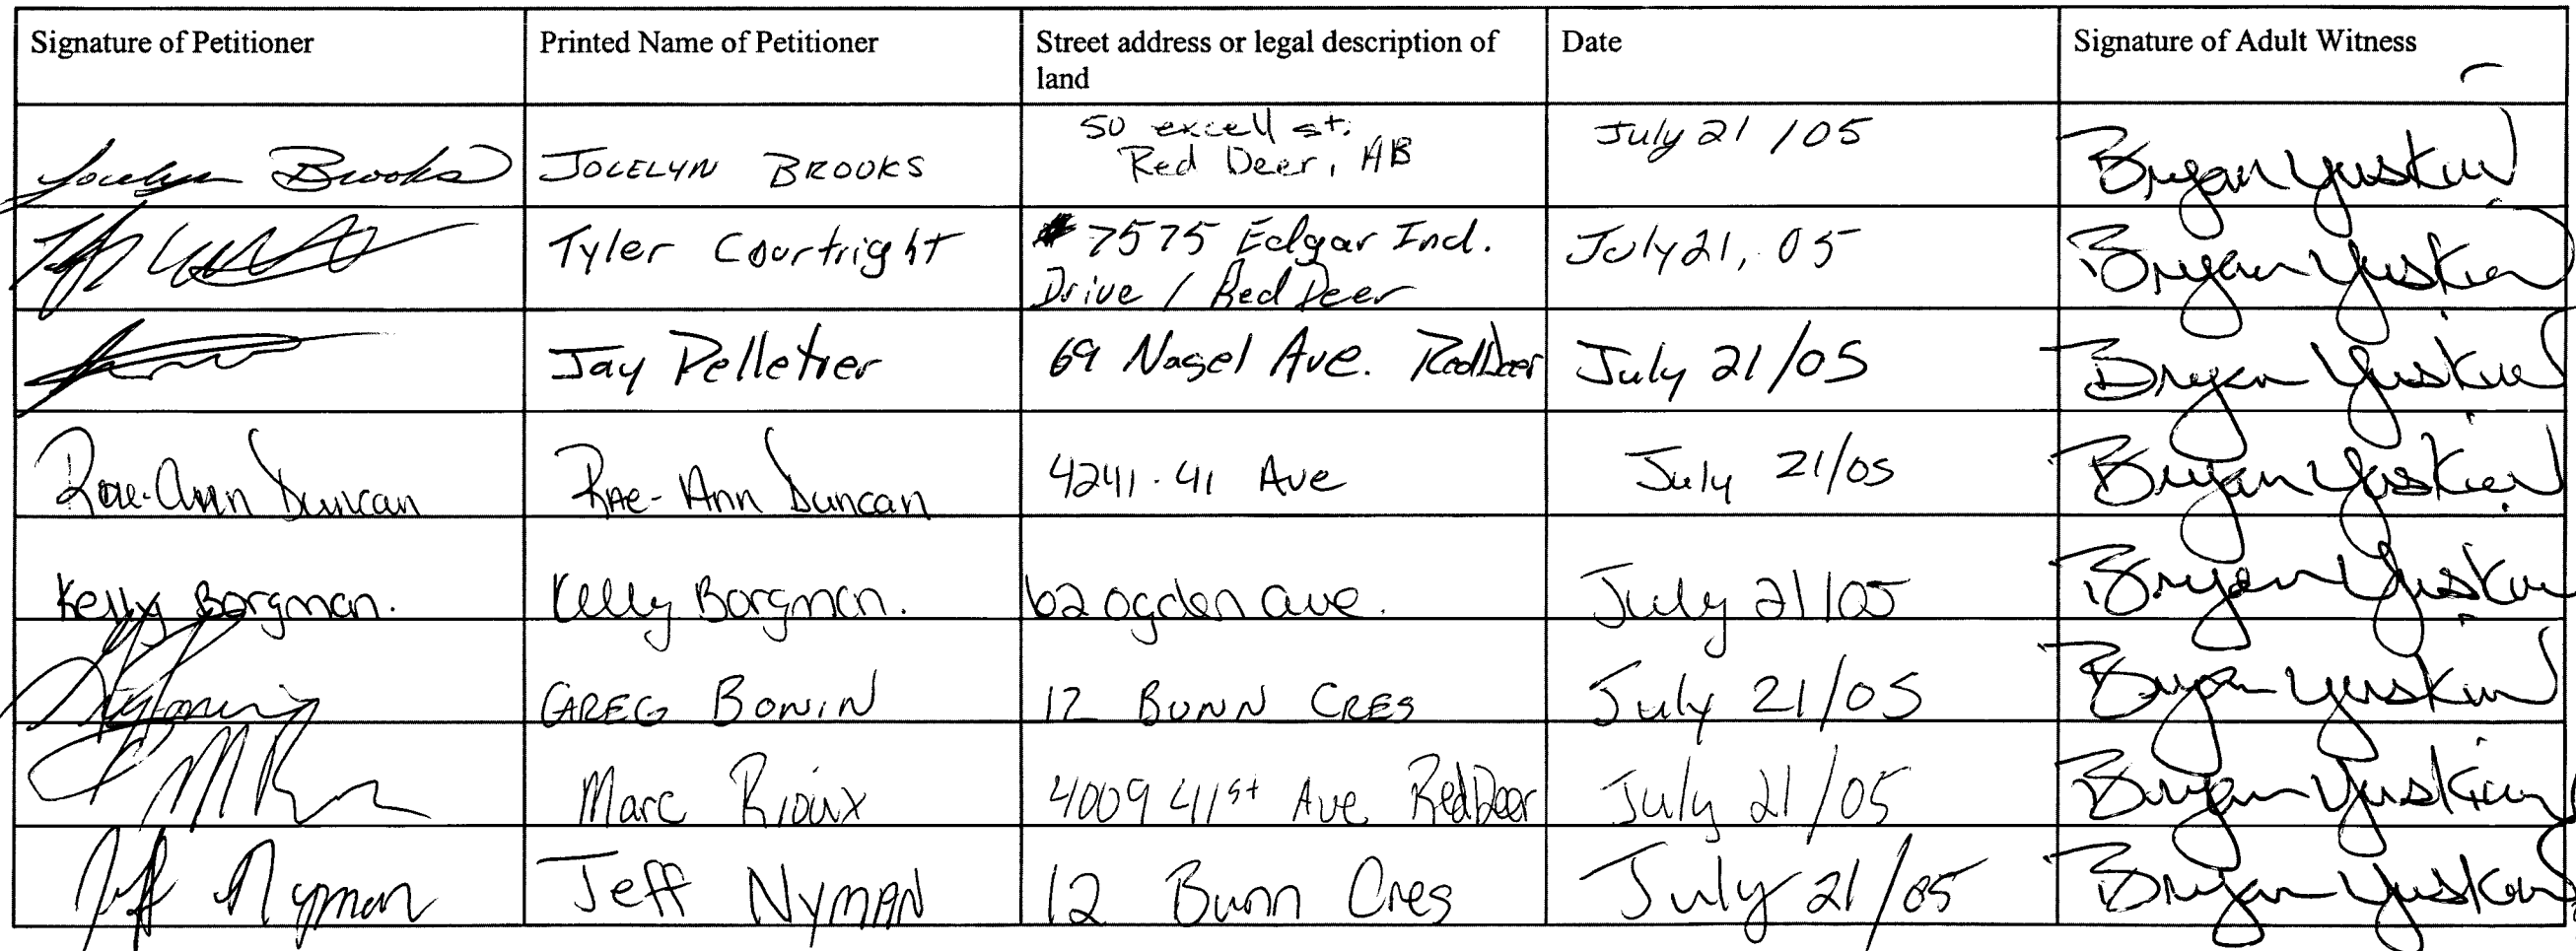 Signature of Petitioner Printed Name of Petitioner Street address or legal description of land Date Signature of Adult Witness
Jocelyn Brooks JOCELYN BROOKS 50 excell st. Red Deer, AB July 21 /05 Bryan Yuskiw
Tyler Courtright # 7575 Edgar Ind. Drive / Red Deer July 21, 05 Bryan Yuskiw
Jay Pelletier 69 Nagel Ave. Red Deer July 21/05 Bryan Yuskiw
Rae-Ann Duncan Rae-Ann Duncan 4241-41 Ave July 21/05 Bryan Yuskiw
Kelly Borgman. Kelly Borgman. 62 ogden ave. July 21/05 Bryan Yuskiw
GREG BONIN 12 BUNN CRES July 21/05 Bryan Yuskiw
Marc Rioux 4009 41st Ave Red Deer July 21/05 Bryan Yuskiw
Jeff Nyman Jeff NYMAN 12 Bunn Cres July 21/05 Bryan Yuskiw